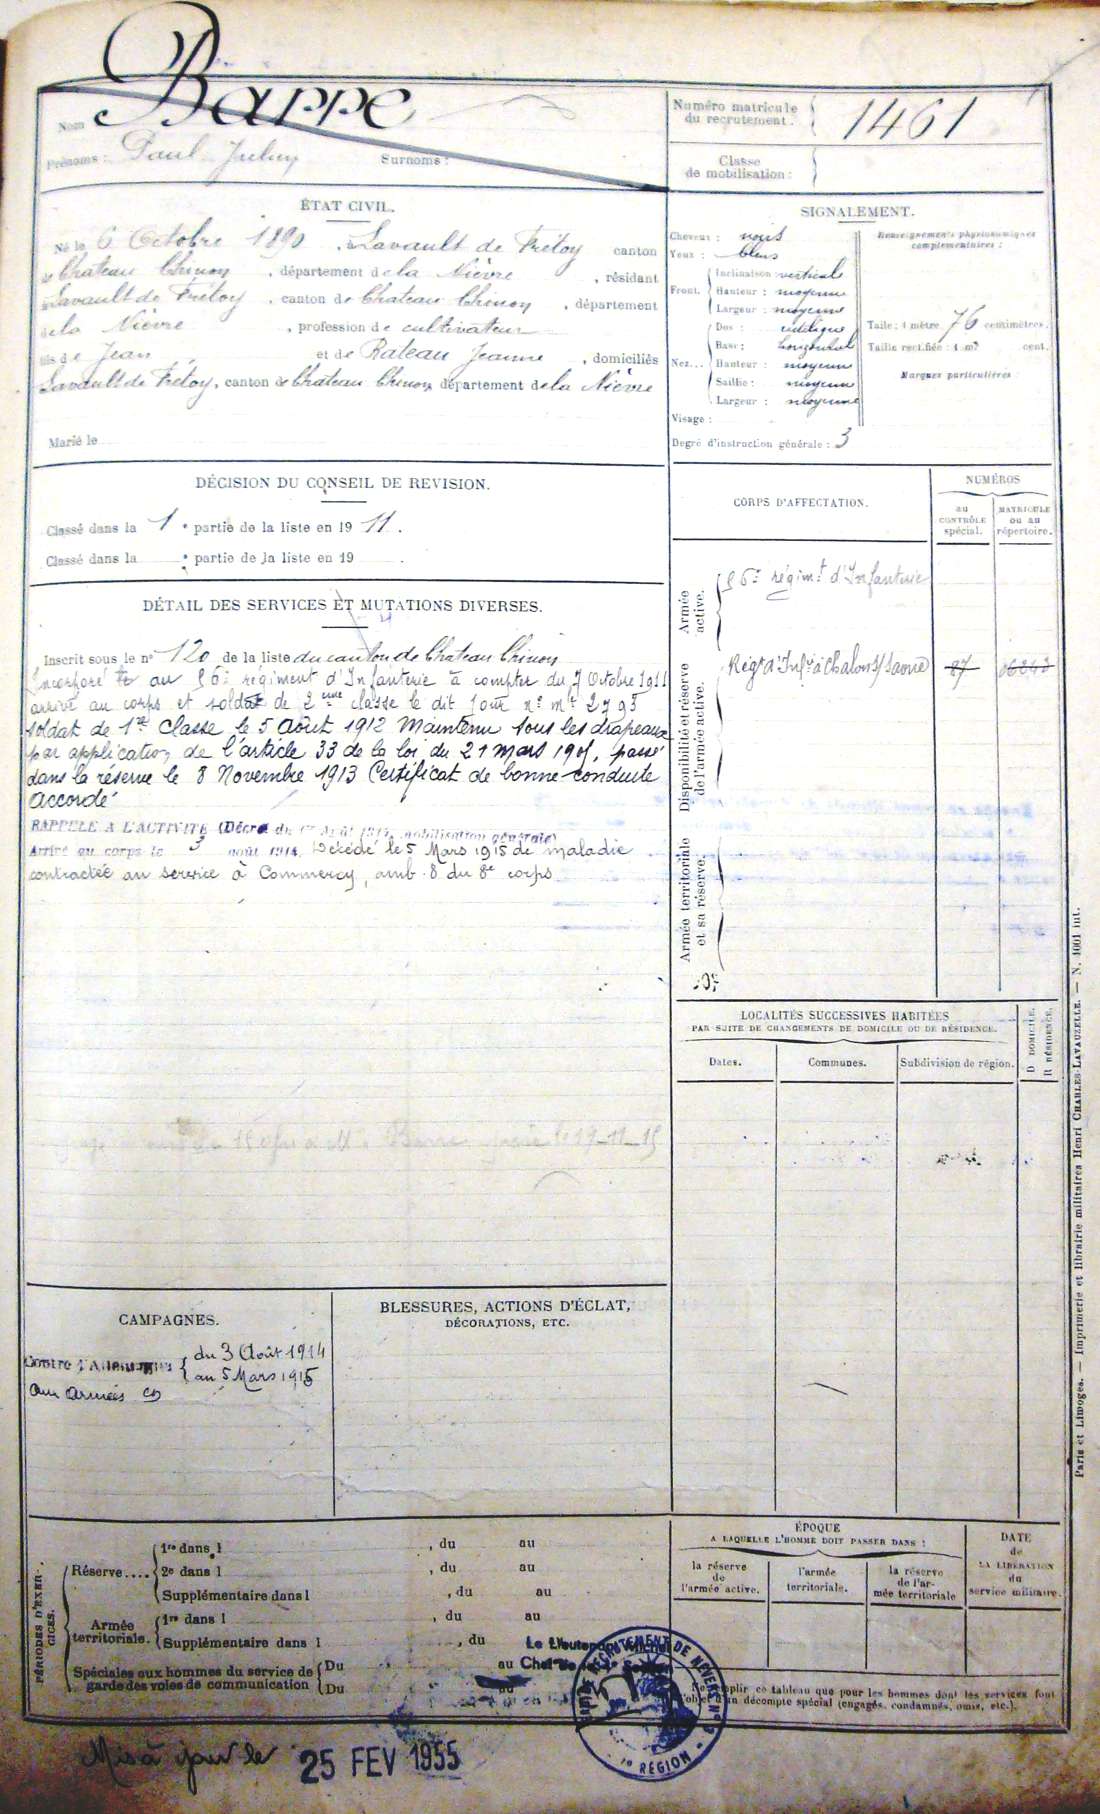 Nom Barre
Prénoms : Paul Surnoms :
Numéro matricule
du recrutement. 1461
Classe
de mobilisation :
ÉTAT CIVIL.
Né le 6 Octobre 1890, à Lavault de Frétoy canton
de Chateau Chinon, département de la Nièvre, résidant
à Lavault de Frétoy, canton de Chateau Chinon, département
de la Nièvre, profession de cultivateur
fils de Jean et de Rateau Jeanne, domiciliés
Lavault de Frétoy, canton de Chateau Chinon département de la Nièvre
Marié le
SIGNALEMENT.
Cheveux : noirs
Yeux : bleus
Front. Inclinaison verticale
Hauteur : moyenne
Largeur : moyenne
Nez... Dos : rectiligne
Base : horizontal
Hauteur : moyenne
Saillie : moyenne
Largeur : moyenne
Visage :
Degré d'instruction générale : 3
Renseignements physionomiques
complémentaires :
Taille : 1 mètre 76 centimètres.
Taille rectifiée : 1 m cent.
Marques particulières :
DÉCISION DU CONSEIL DE REVISION.
Classé dans la 1 e partie de la liste en 1911.
Classé dans la e partie de la liste en 19 .
DÉTAIL DES SERVICES ET MUTATIONS DIVERSES.
Inscrit sous le n° 120 de la liste du canton de Chateau Chinon
Incorporé au 56e régiment d'Infanterie à compter du 7 Octobre 1911
arrivé au corps et soldat de 2eme classe le dit jour n° mle 2795
soldat de 1re classe le 5 Août 1912 Maintenu sous les drapeaux
par application de l'article 33 de la loi du 21 mars 1905, passé
dans la réserve le 8 Novembre 1913 Certificat de bonne conduite
accordé
RAPPELÉ A L'ACTIVITÉ (Décret du 1er Août 1914, mobilisation générale)
Arrivé au corps le 3 août 1914. Décédé le 5 Mars 1915 de maladie
contractée au service à Commercy, amb. 8 du 8e corps
le 19-11-15
CORPS D'AFFECTATION.
NUMÉROS
au
CONTRÔLE
spécial.
MATRICULE
ou au
répertoire.
Armée
active.
56e régimt d'Infanterie
Disponibilité et réserve
de l'armée active.
Régt d'Infie à Chalon s/ Saone 87
Armée territoriale
et sa réserve.
LOCALITÉS SUCCESSIVES HABITÉES
PAR SUITE DE CHANGEMENTS DE DOMICILE OU DE RÉSIDENCE.
Dates.
Communes.
Subdivision de région.
D DOMICILE.
R RÉSIDENCE.
CAMPAGNES.
Contre l'Allemagne du 3 Août 1914
au 5 Mars 1915
aux armées
BLESSURES, ACTIONS D'ÉCLAT,
DÉCORATIONS, ETC.
PÉRIODES D'EXERCICES.
Réserve.... 1re dans l , du au
2e dans l , du au
Supplémentaire dans l , du au
Armée
territoriale. 1re dans l , du au
Supplémentaire dans l , du
Spéciales aux hommes du service de
garde des voies de communication Du au
Du au
Le Lieutenant Michel
RECRUTEMENT DE NEVERS
RÉGION
ÉPOQUE
A LAQUELLE L'HOMME DOIT PASSER DANS :
la réserve
de
l'armée active.
l'armée
territoriale.
la réserve
de l'ar-
mée territoriale
DATE
de
LA LIBÉRATION
du
service militaire.
Ne remplir ce tableau que pour les hommes dont les services font
l'objet d'un décompte spécial (engagés, condamnés, omis, etc.).
Mis à jour le 25 FEV 1955
Paris et Limoges. — Imprimerie et librairie militaires Henri CHARLES-LAVAUZELLE. — N. 4001 int.